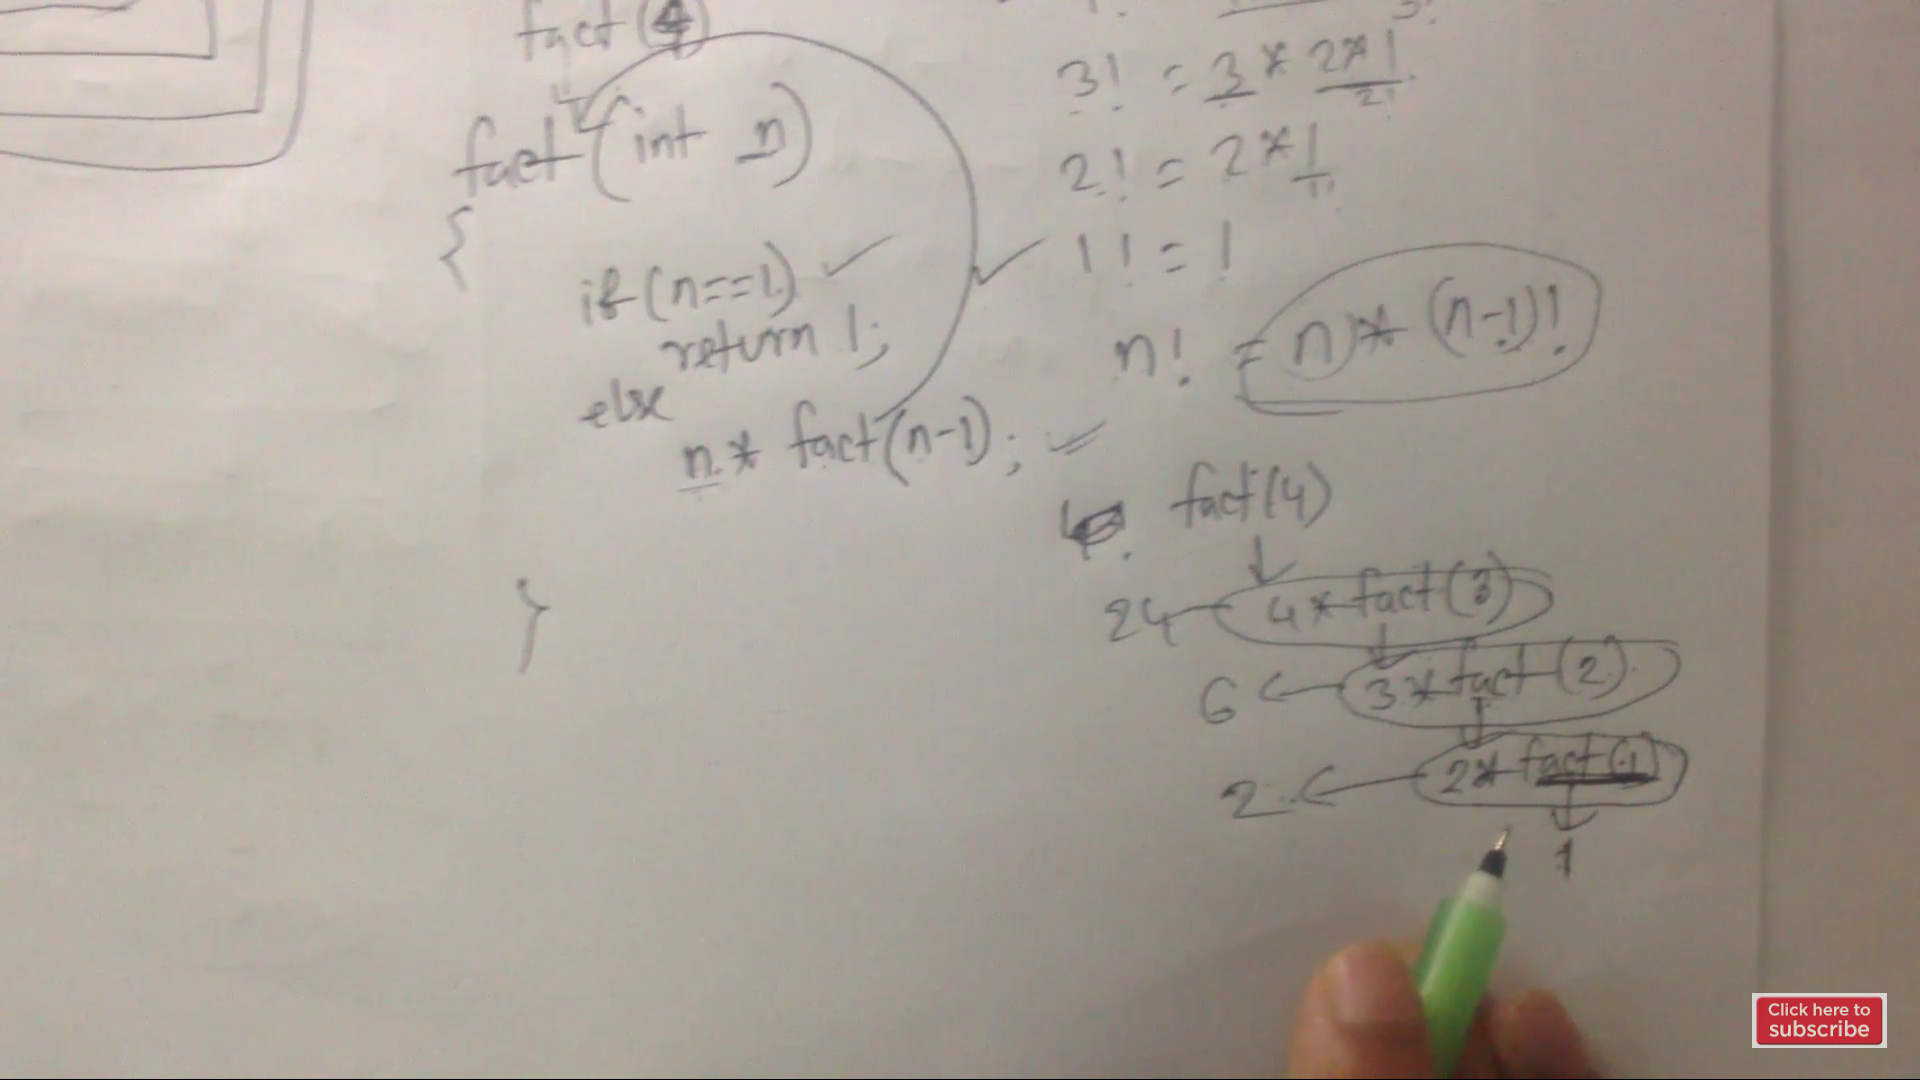 fact(4)
fact(int n)
{
if(n==1)
return 1;
else
n * fact(n-1);
}
3! = 3 * 2*1
2!
2! = 2*1
1!
1! = 1
n! = n * (n-1)!
fact(4)
24 4 * fact(3)
6 3 * fact(2)
2 2 * fact(1)
1
Click here to
subscribe